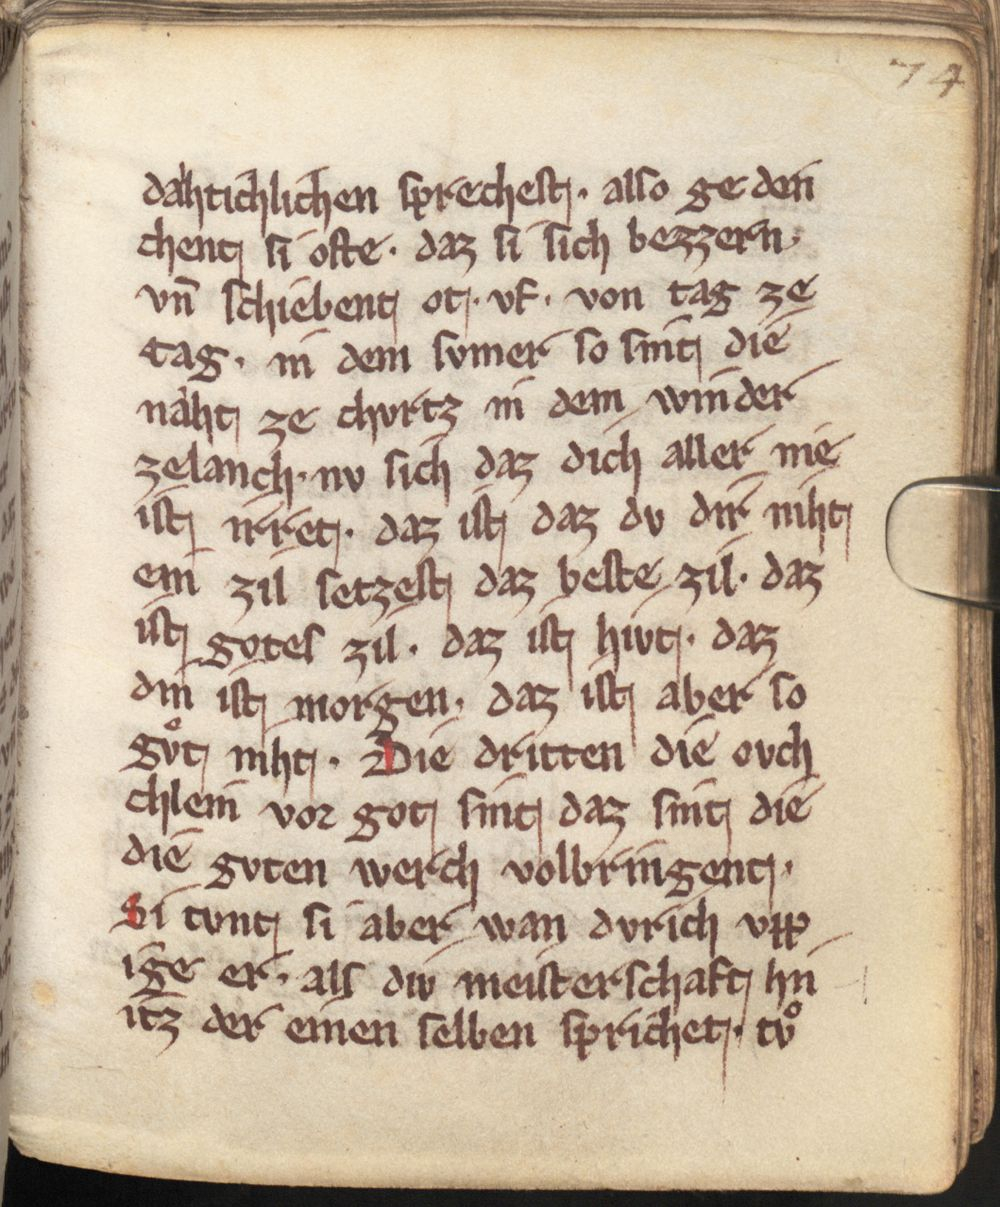 74
dæhtichlichen sprechest · also geden
chent si ofte · daz si sich bezzern ·
vn̄ schiebent ot · vf · von tag ze
tag · in dem svmer so sint die
næht ze chvrtz in dem winder
zelanch · nv sich daz dich aller nie
ist irret · daz ist daz dv dir niht
ein zil setzest daz beste zil · daz
ist gotes zil · daz ist hivt · daz
din ist morgen · daz ist aber so
gvͦt niht · Die dritten die ovch
chlein vor got sint daz sint die
die gvten werch volbringent ·
Si tvnt si aber wan dvrich vpp
ige er · als div meisterschaft hin
itz der einen selben sprichet · tvͦ